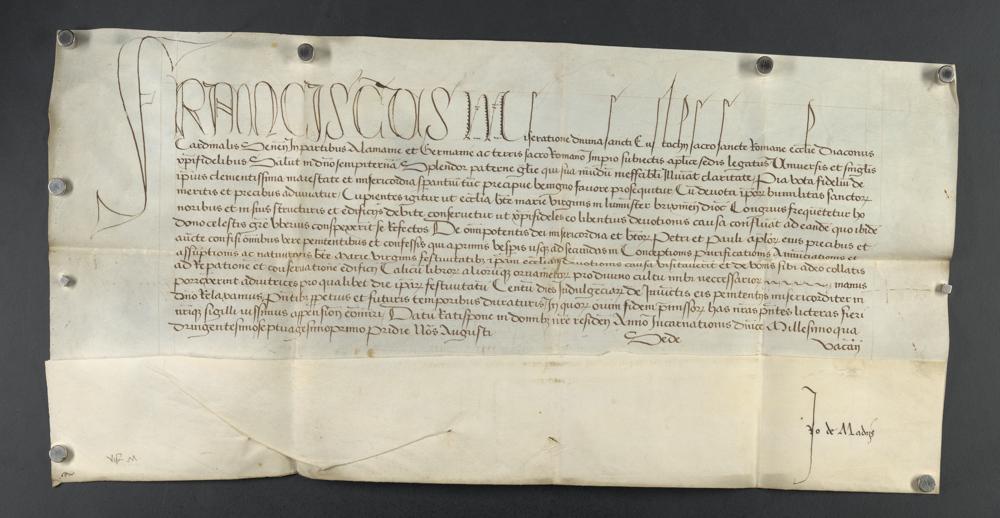 FRANCISCUS Miseratione divina sancti Eustochy sacrosancte Romane ecclie Diaconus
Cardinalis Senen In partibus Alamanie et Germanie ac terris sacro Romano Imperio subiectis aplice sedis legatus Universis et singlis
xpifidelibus Salutem in dno sempiternam Splendor paterne glie qui sua mundum ineffabili Illuminat claritate Pia vota fidelium de
ipsius clementissima maiestate et misericordia sperantium tunc precipue benigno favore prosequitur Cum devota ipsor humilitas sanctor
meritis et precibus adiuvatur Cupientes igitur ut ecclia bte marie virginis in Brixinen dioc Congruis frequetetur ho
noribus et in suis structuris et edificijs debite conservetur ut xpifideles eo libentius devotionis causa confluant ad eande quo ibide
dono celestis gre uberius conspexerit se Refectos De omipotentis dei misericordia et btor Petri et Pauli aplor eius precibus et
aucte confisi omibus vere penitentibus et confessis qui a primis vespis usque ad secundas in Conceptionis Purificationis Annuntiationis et
assuptionis ac nativitatis bte Marie virginis festivitatibus ipam eccliam devotionis causa visitaverit et de bonis sibi a deo collatis
ad repationem et conservatione edificij Calicu libror aliorumque ornamentor pro divino cultu inibi necessarior manus
porrexerint adiutrices pro qualibet die ipsar festivitatu Centu dies Indulgeciar de Iniunctis eis penitentijs misericorditer in
dno Relaxamus Pntibus ppetuis et futuris temporibus duraturis In quor omium fidem pmissor has nras pntes litteras fieri
nriq sigilli iussimus apensione comuiri Datu Ratispone in domibus nre residen Anno Incarnationis dnice Millesimo qua
dringentesimoseptuagesimoprimo Pridie Nos Augusti Sede Vacan
Jo de Madijs